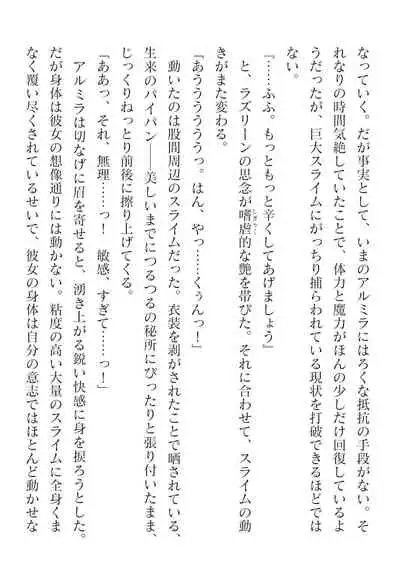 なっていく。だが事実として、いまのアルミラにはろくな抵抗の手段がない。そ
れなりの時間気絶していたことで、体力と魔力がほんの少しだけ回復しているよ
うだったが、巨大スライムにがっちり捕らわれている現状を打破できるほどでは
ない。
『……ふふ。もっともっと辛くしてあげましょう』
と、ラズリーンの思念が嗜虐的な艶を帯びた。それに合わせて、スライムの動
きがまた変わる。
「あうううううっ。はん、やっ……くぅんっ!」
動いたのは股間周辺のスライムだった。衣装を剥がされたことで晒されている、
生来のパイパン――美しいまでにつるつるの秘所にぴったりと張り付いたまま、
じっくりねっとり前後に擦り上げてくる。
「ああっ、それ、無理……っ! 敏感、すぎて……っ!」
アルミラは切なげに眉を寄せると、湧き上がる鋭い快感に身を捩ろうとした。
だが身体は彼女の想像通りには動かない。粘度の高い大量のスライムに全身くま
なく覆い尽くされているせいで、彼女の身体は自分の意志ではほとんど動かせな